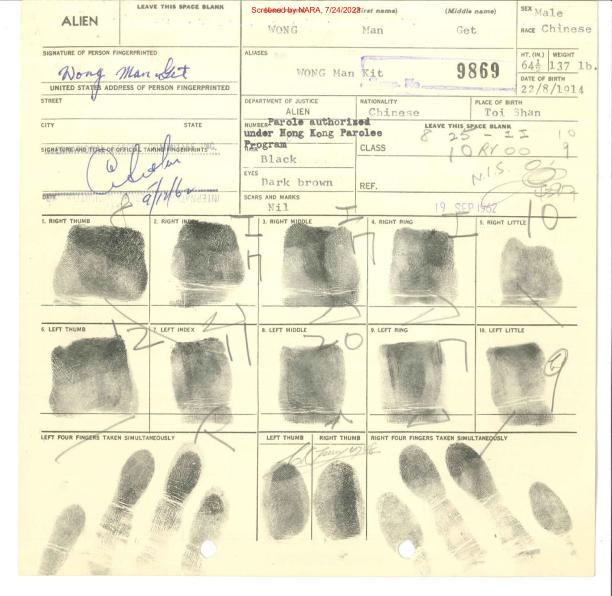 Screened by NARA, 7/24/2023
ALIEN
LEAVE THIS SPACE BLANK
(First name)
(Middle name)
WONG Man Get
SEX Male
RACE Chinese
SIGNATURE OF PERSON FINGERPRINTED
Wong Man Git
ALIASES
WONG Man Kit
9869
HT. (IN.) WEIGHT
64½ 137 lb.
DATE OF BIRTH
22/8/1914
UNITED STATES ADDRESS OF PERSON FINGERPRINTED
STREET
CITY STATE
DEPARTMENT OF JUSTICE
ALIEN
NATIONALITY
Chinese
PLACE OF BIRTH
Toi Shan
NUMBER
Parole authorized
under Hong Kong Parolee
Program
LEAVE THIS SPACE BLANK
8 25 - II 10
CLASS
10 RV OO 9
SIGNATURE AND TITLE OF OFFICIAL TAKING FINGERPRINTS
DATE
HAIR
Black
EYES
Dark brown
REF.
N.I.S.
SCARS AND MARKS
Nil
19 SEP 1962
1. RIGHT THUMB
2. RIGHT INDEX
3. RIGHT MIDDLE
4. RIGHT RING
5. RIGHT LITTLE
10
6. LEFT THUMB
12
7. LEFT INDEX
11
8. LEFT MIDDLE
20
9. LEFT RING
17
10. LEFT LITTLE
9
LEFT FOUR FINGERS TAKEN SIMULTANEOUSLY
LEFT THUMB
RIGHT THUMB
RIGHT FOUR FINGERS TAKEN SIMULTANEOUSLY